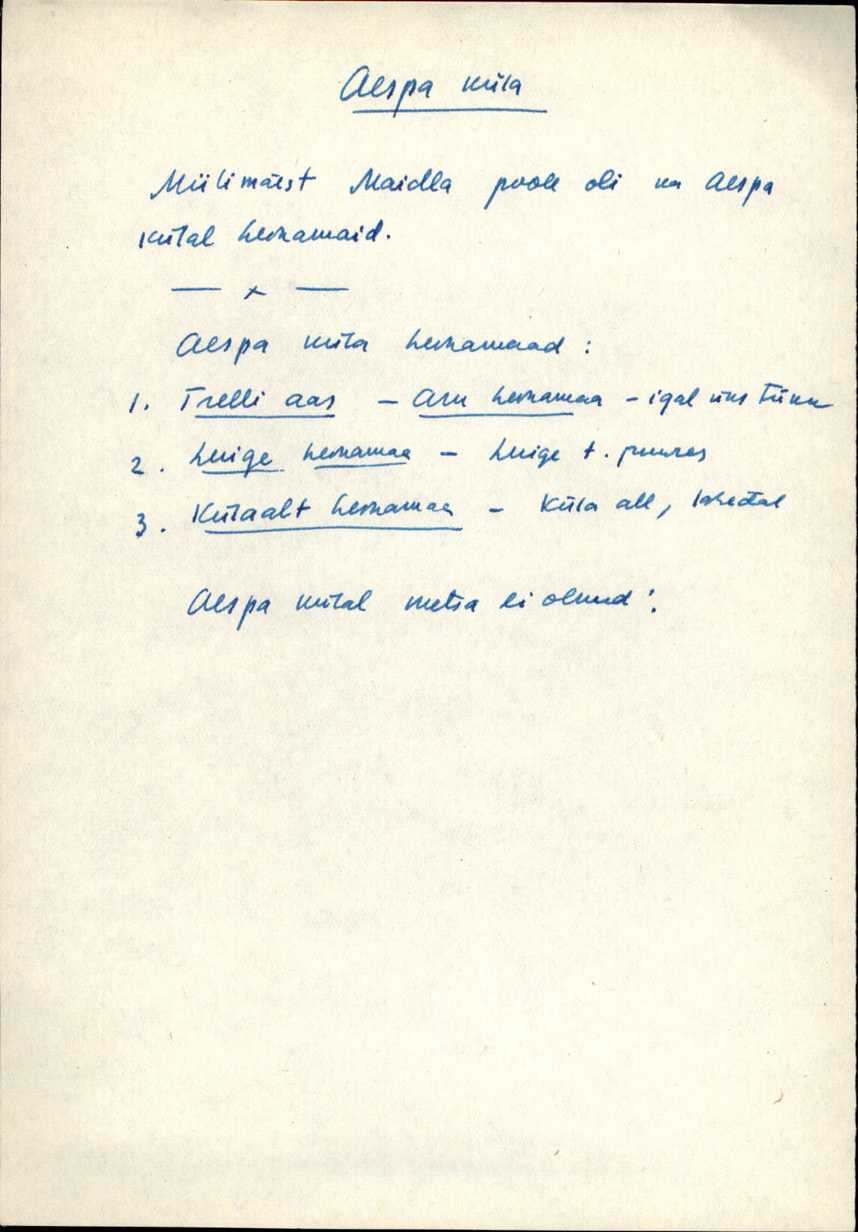 Aespa küla
Müllimäest Maidla poole oli ka Aespa
külal heinamaid.
— x —
Aespa küla heinamaad :
1. Trelli aas — Aru heinamaa - igal üks tükk
2. Luige heinamaa — Luige t. juures
3. Külaalt heinamaa — Küla all, lahedal
Aespa külal metsa ei olnud!